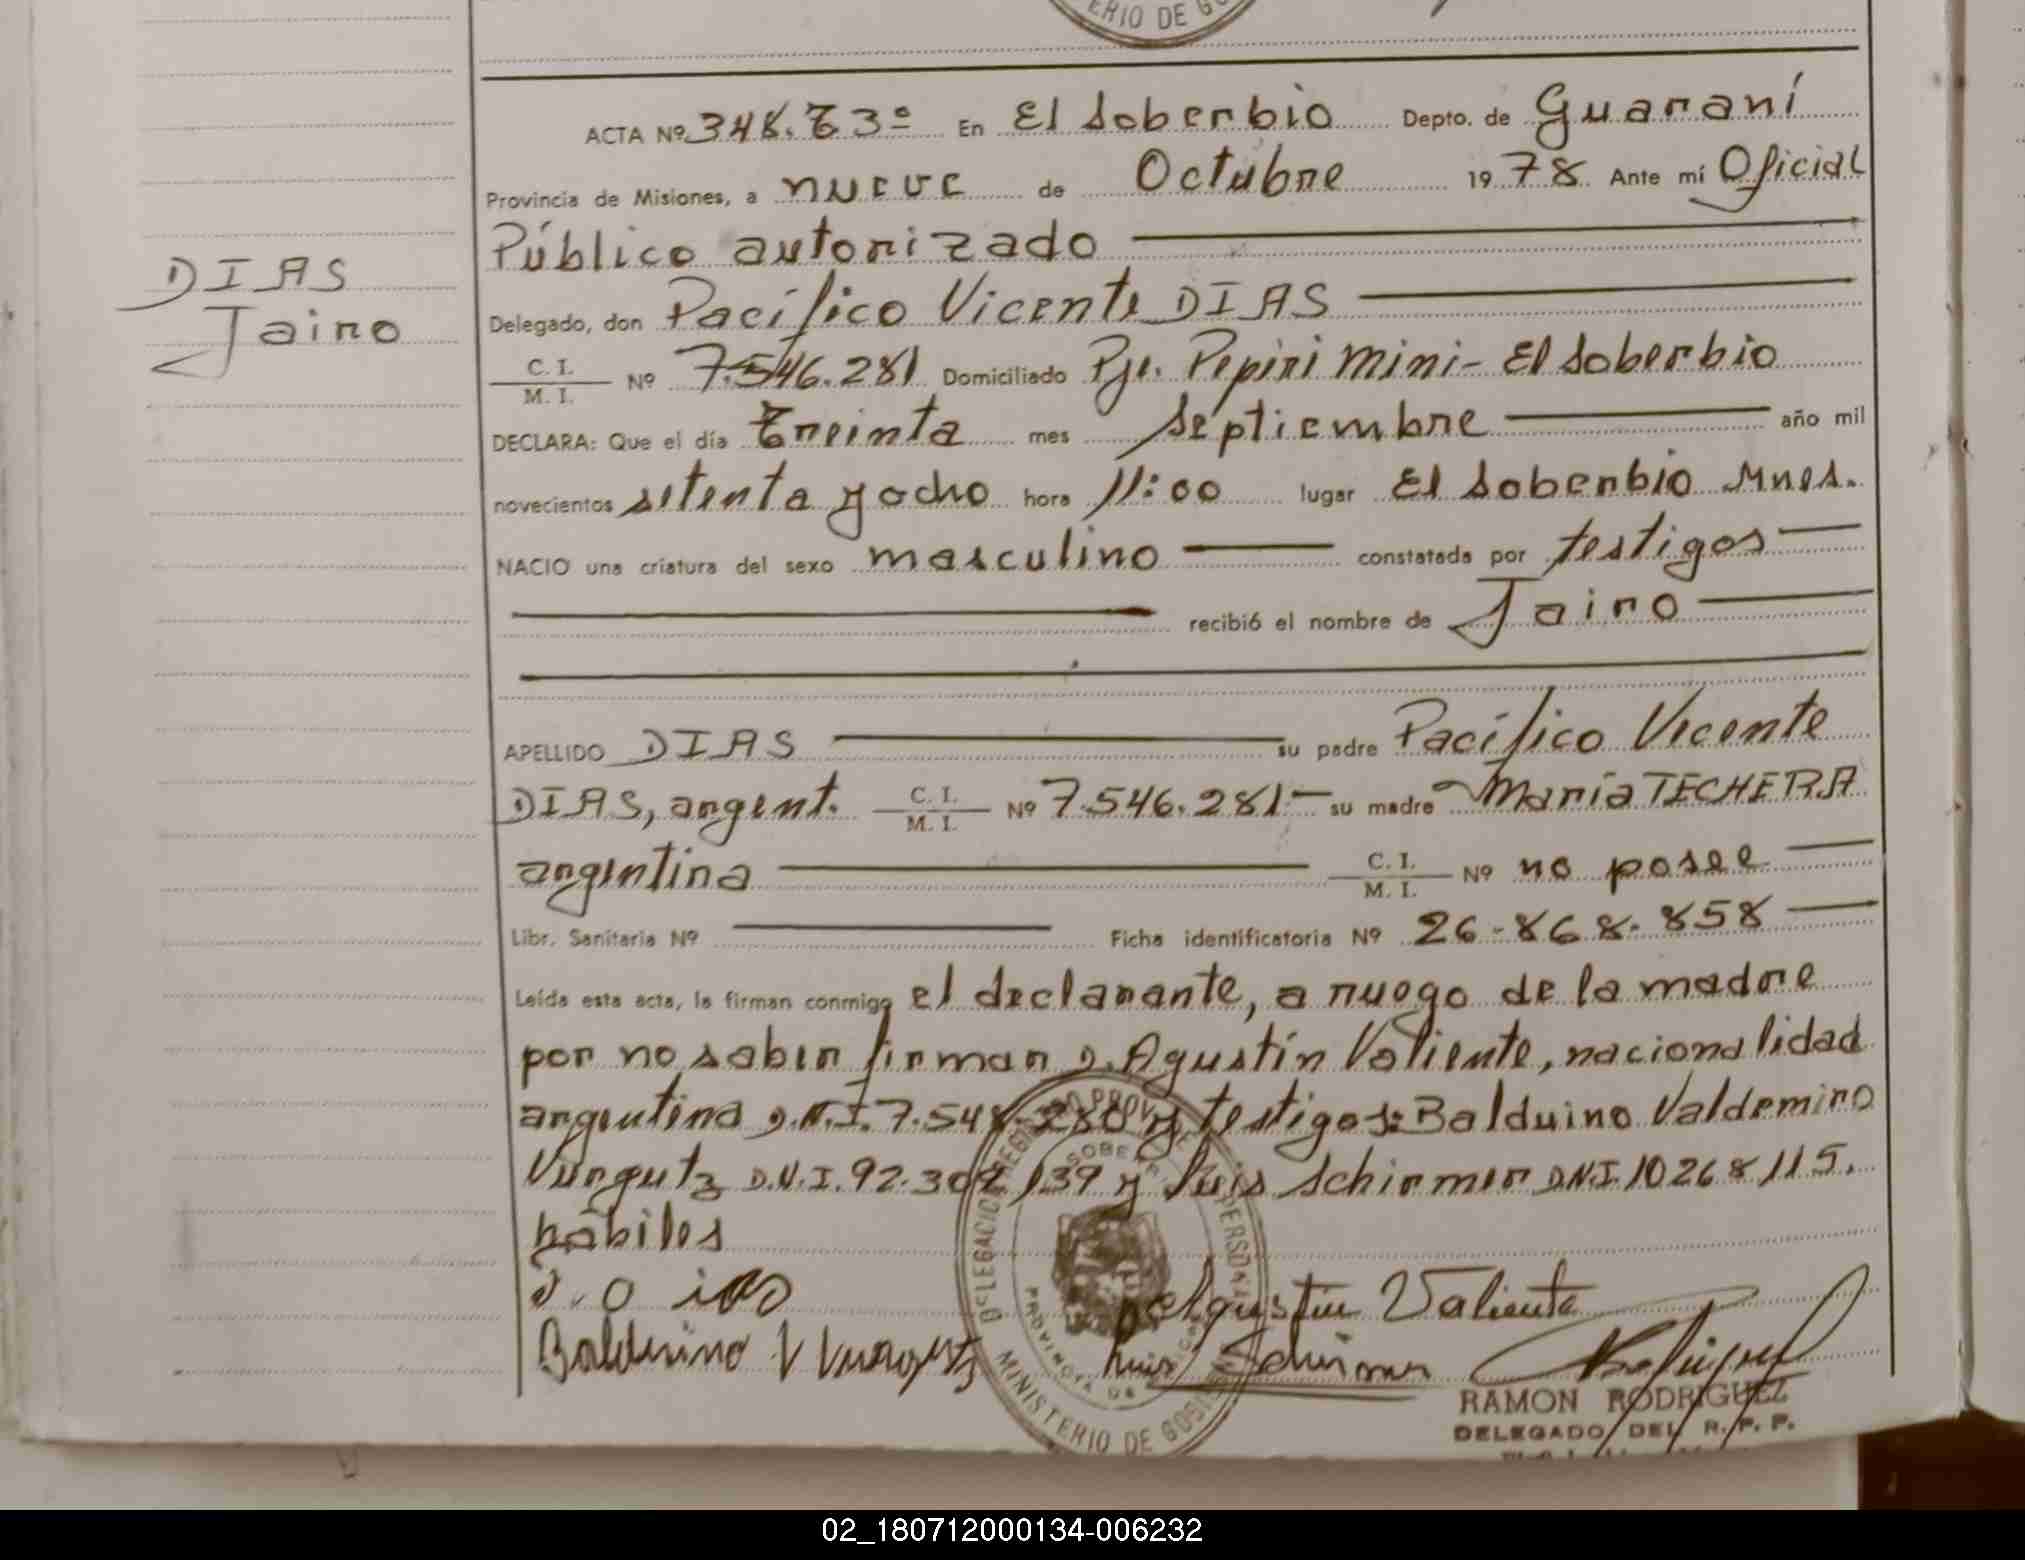 ERIO DE GO
ACTA Nº 348. T3º En El Soberbio Depto. de Guaraní
Provincia de Misiones, a nueve de Octubre 1978 Ante mí Oficial
Público autorizado
DIAS
Jairo
Delegado, don Pacífico Vicente DIAS
C. I.
M. I. Nº 7.546.281 Domiciliado Pje. Pepiri Mini - El Soberbio
DECLARA: Que el día treinta mes septiembre año mil
novecientos setenta y ocho hora 11:00 lugar El Soberbio Mnes.
NACIO una criatura del sexo masculino constatada por testigos
recibió el nombre de Jairo
APELLIDO DIAS su padre Pacífico Vicente
DIAS, argent. C. I. M. I. Nº 7.546.281 su madre María TECHERA
argentina C. I. M. I. Nº no posee
Libr. Sanitaria Nº Ficha identificatoria Nº 26-868.858
Leída esta acta, la firman conmigo el declarante, a ruego de la madre
por no saber firmar D. Agustín Valiente, nacionalidad
argentina D.N.I. 7.548.280 y testigos: Balduino Valdemiro
Vurgutz D.N.I. 92.302.139 y Luis Schirmer DNI. 10268115.
hábiles
Agustín Valiente
Balduino V Luis Schirmer
DELEGACION REGISTRO PROV. DE PERSONAS
MINISTERIO DE GOBIERNO
RAMON RODRIGUEZ
DELEGADO DEL R. P. P.
02_180712000134-006232